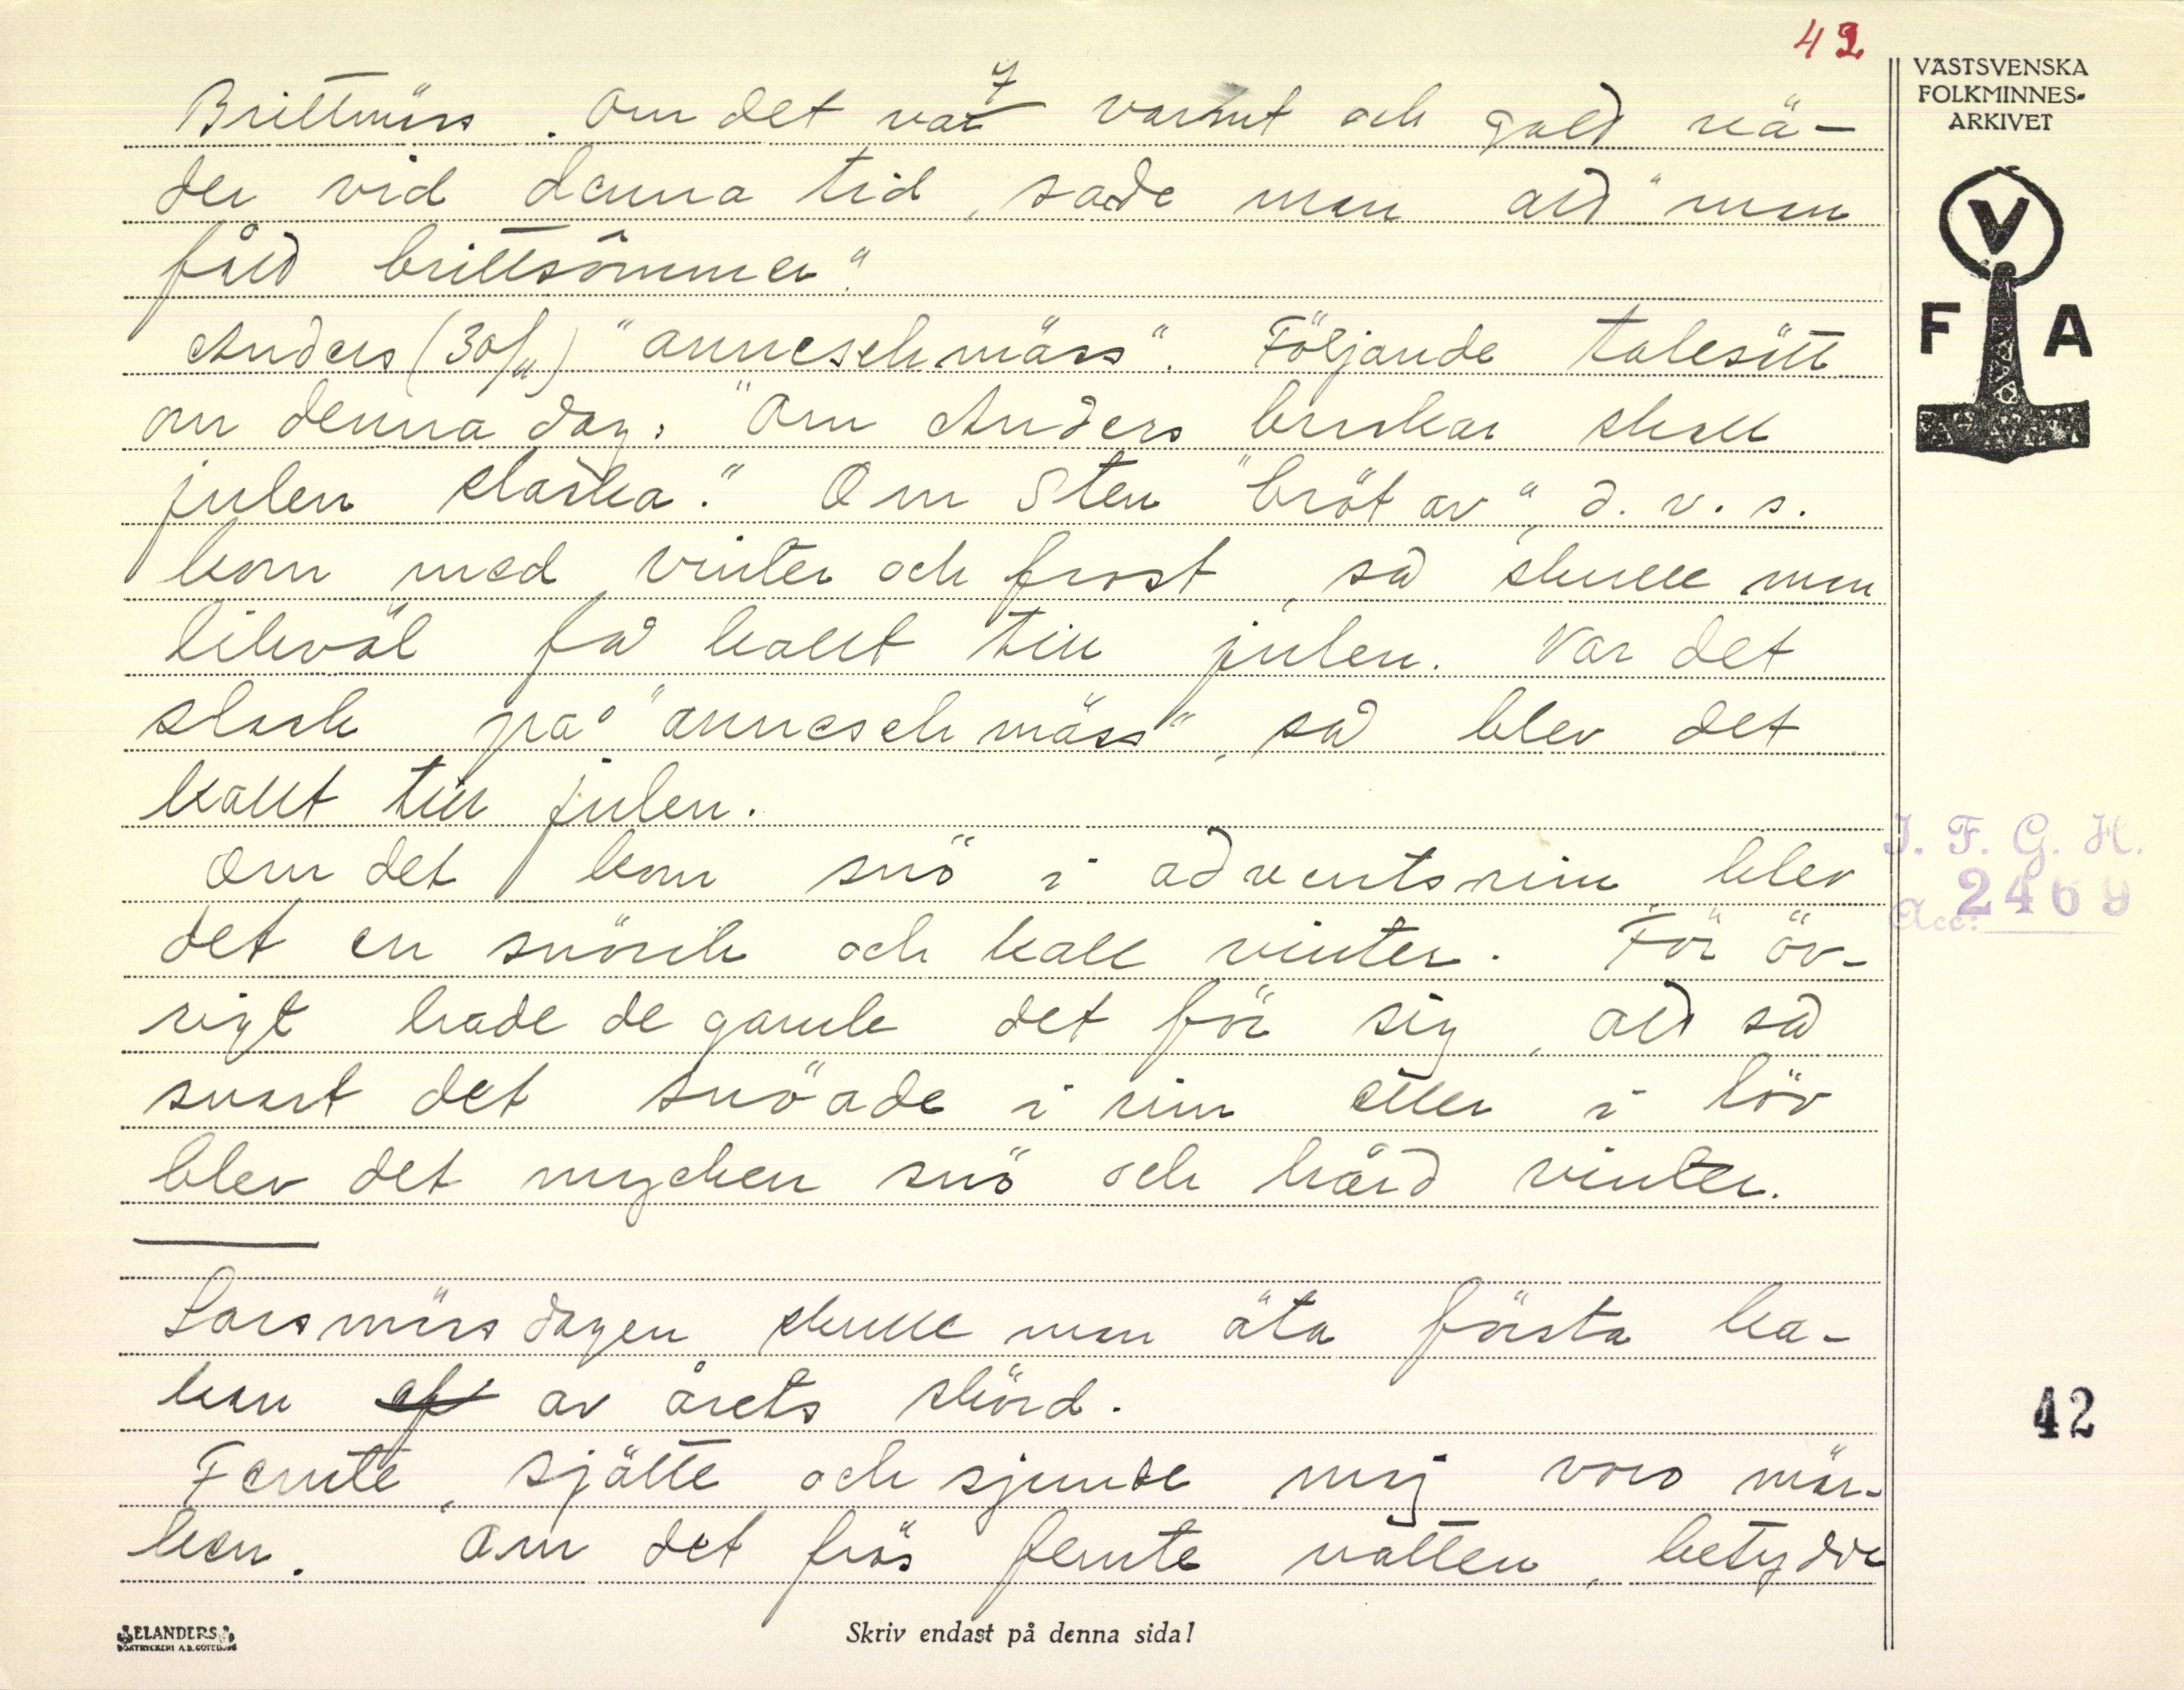 42
VÄSTSVENSKA
FOLKMINNES-
ARKIVET
V
F A
Brittmäss. Om det var varmt och gott vä-
der vid denna tid, sade man att "man
fått brittsômmer".
Anders (30/11) "anneschmäss". Följande talesätt
om denna dag: "Om Anders braskar skall
julen slaska." Om Sten "bröt av", d. v. s.
kom med vinter och frost, så skulle man
likväl få kallt till julen. Var det
slask på "anneschmäss", så blev det
kallt till julen.
Om det kom snö i adventsrim blev
det en snörik och kall vinter. För öv-
rigt hade de gamle det för sig, att så
snart det snöade i rim eller i löv
blev det mycken snö och hård vinter.
Larsmässdagen skulle man äta första ka-
kan av årets skörd.
Femte, sjätte och sjunde maj voro mär-
ken. Om det frös femte natten, betydde
I. F. G. H.
Acc: 2469
42
ELANDERS
BOKTRYCKERI A.B. GÖTEBORG
Skriv endast på denna sida!